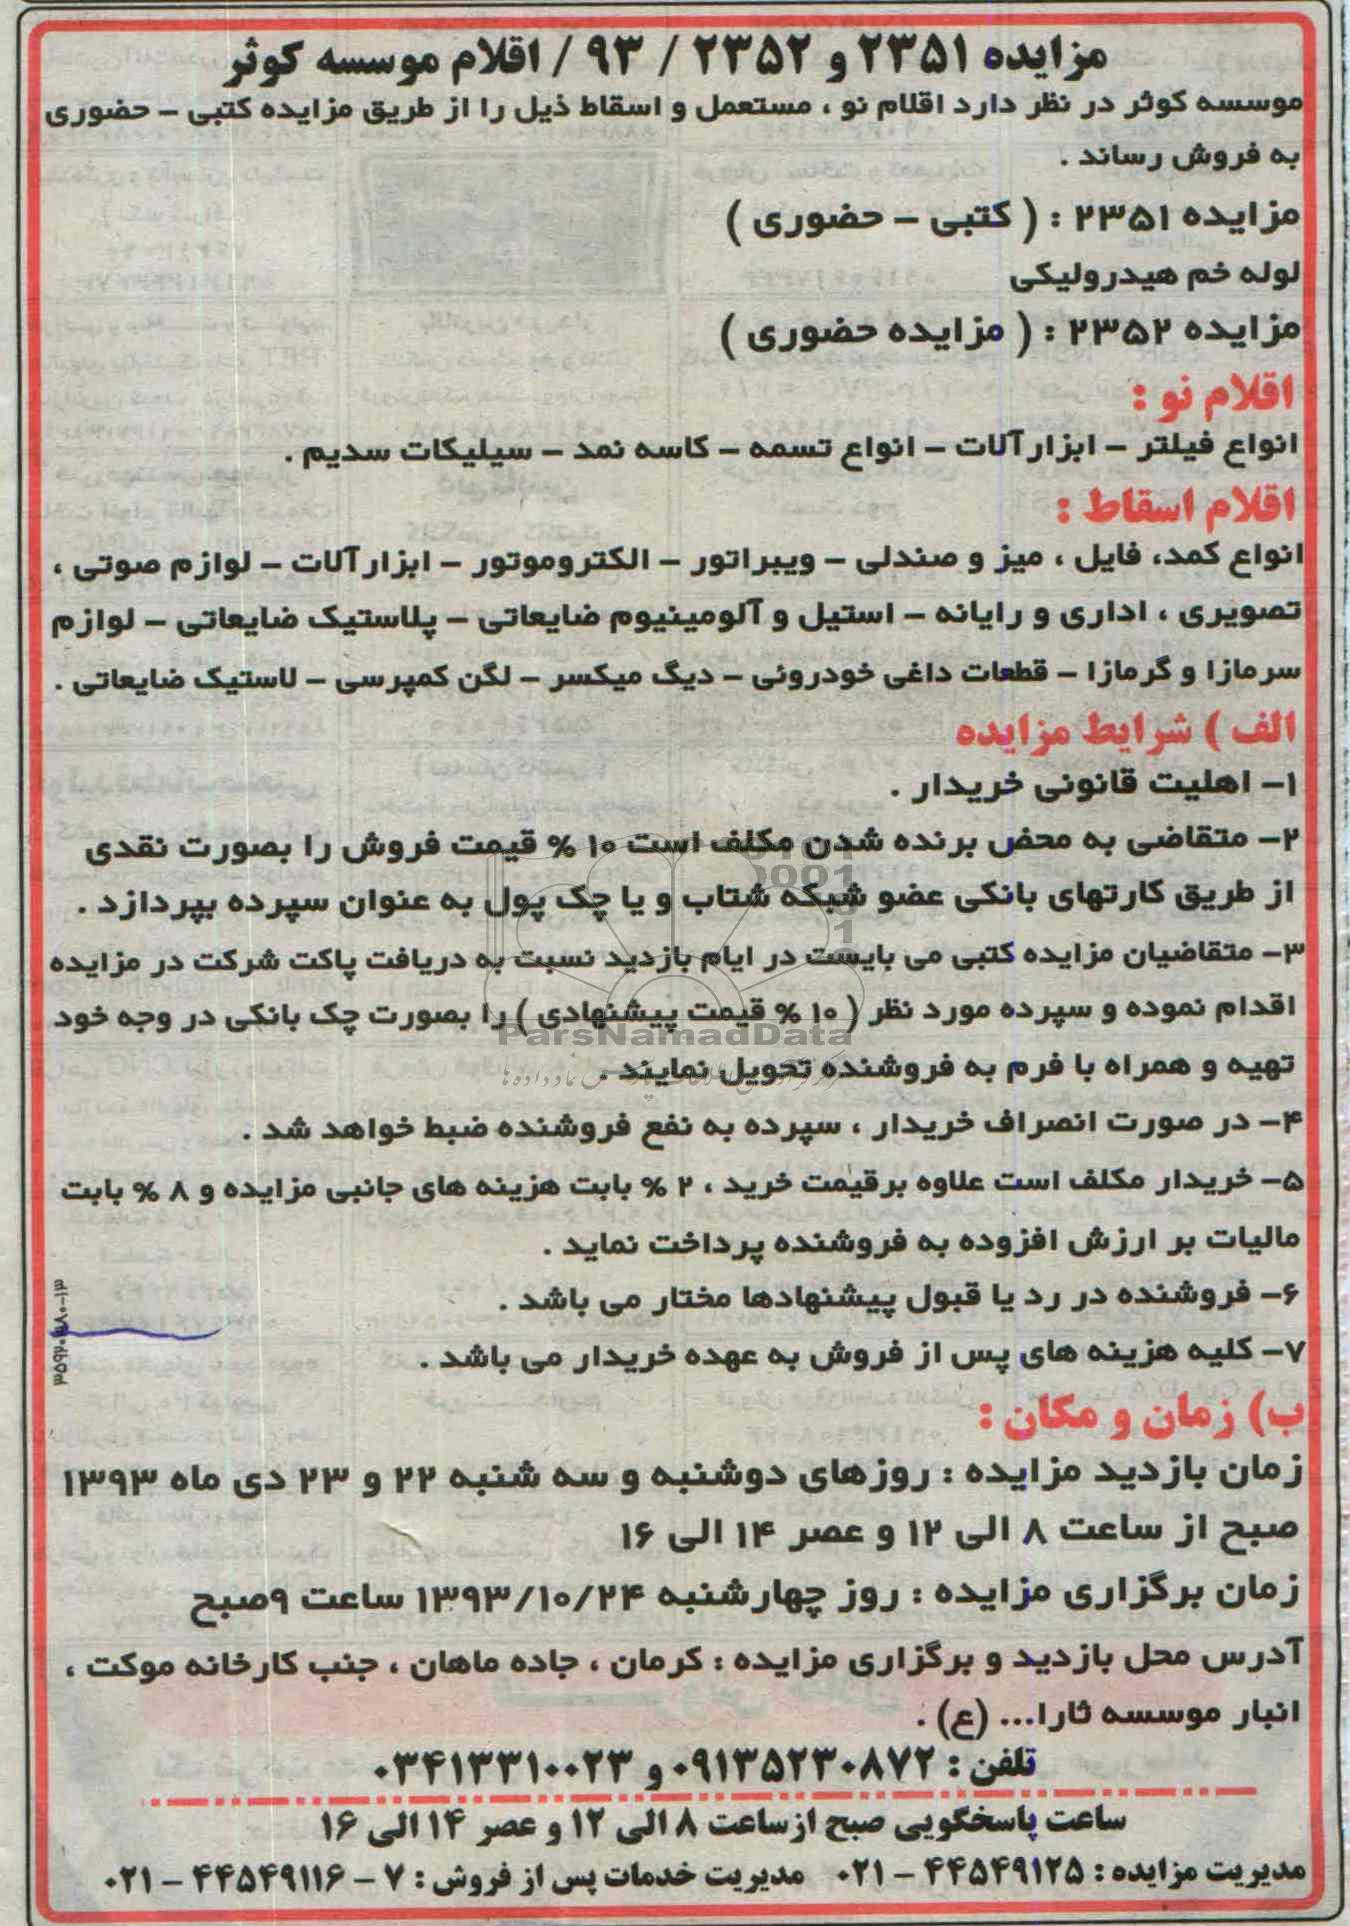 مزایده ۲۳۵۱ و ۲۳۵۲ / ۹۳ / اقلام موسسه کوثر
موسسه کوثر در نظر دارد اقلام نو ، مستعمل و اسقاط ذیل را از طریق مزایده کتبی – حضوری
به فروش رساند .
مزایده ۲۳۵۱ : ( کتبی – حضوری )
لوله خم هیدرولیکی
مزایده ۲۳۵۲ : ( مزایده حضوری )
اقلام نو :
انواع فیلتر – ابزارآلات – انواع تسمه – کاسه نمد – سیلیکات سدیم .
اقلام اسقاط :
انواع کمد، فایل ، میز و صندلی – ویبراتور – الکتروموتور – ابزارآلات – لوازم صوتی ،
تصویری ، اداری و رایانه – استیل و آلومینیوم ضایعاتی – پلاستیک ضایعاتی – لوازم
سرمازا و گرمازا – قطعات داغی خودروئی – دیگ میکسر – لگن کمپرسی – لاستیک ضایعاتی .
الف ) شرایط مزایده
۱– اهلیت قانونی خریدار .
۲– متقاضی به محض برنده شدن مکلف است ۱۰ % قیمت فروش را بصورت نقدی
از طریق کارتهای بانکی عضو شبکه شتاب و یا چک پول به عنوان سپرده بپردازد .
۳– متقاضیان مزایده کتبی می بایست در ایام بازدید نسبت به دریافت پاکت شرکت در مزایده
اقدام نموده و سپرده مورد نظر ( ۱۰ % قیمت پیشنهادی ) را بصورت چک بانکی در وجه خود
ParsNamadData
تهیه و همراه با فرم به فروشنده تحویل نمایند .
۴– در صورت انصراف خریدار ، سپرده به نفع فروشنده ضبط خواهد شد .
۵– خریدار مکلف است علاوه برقیمت خرید ، ۲ % بابت هزینه های جانبی مزایده و ۸ % بابت
مالیات بر ارزش افزوده به فروشنده پرداخت نماید .
۶– فروشنده در رد یا قبول پیشنهادها مختار می باشد .
۷– کلیه هزینه های پس از فروش به عهده خریدار می باشد .
ب) زمان و مکان :
زمان بازدید مزایده : روزهای دوشنبه و سه شنبه ۲۲ و ۲۳ دی ماه ۱۳۹۳
صبح از ساعت ۸ الی ۱۲ و عصر ۱۴ الی ۱۶
زمان برگزاری مزایده : روز چهارشنبه ۱۳۹۳/۱۰/۲۴ ساعت ۹صبح
آدرس محل بازدید و برگزاری مزایده : کرمان ، جاده ماهان ، جنب کارخانه موکت ،
انبار موسسه ثارا... (ع) .
تلفن : ۰۹۱۳۵۲۳۰۸۷۲ و ۰۳۴۱۳۳۱۰۰۲۳
ساعت پاسخگویی صبح ازساعت ۸ الی ۱۲ و عصر ۱۴ الی ۱۶
مدیریت مزایده : ۴۴۵۴۹۱۲۵ – ۰۲۱ مدیریت خدمات پس از فروش : ۷ – ۴۴۵۴۹۱۱۶ – ۰۲۱